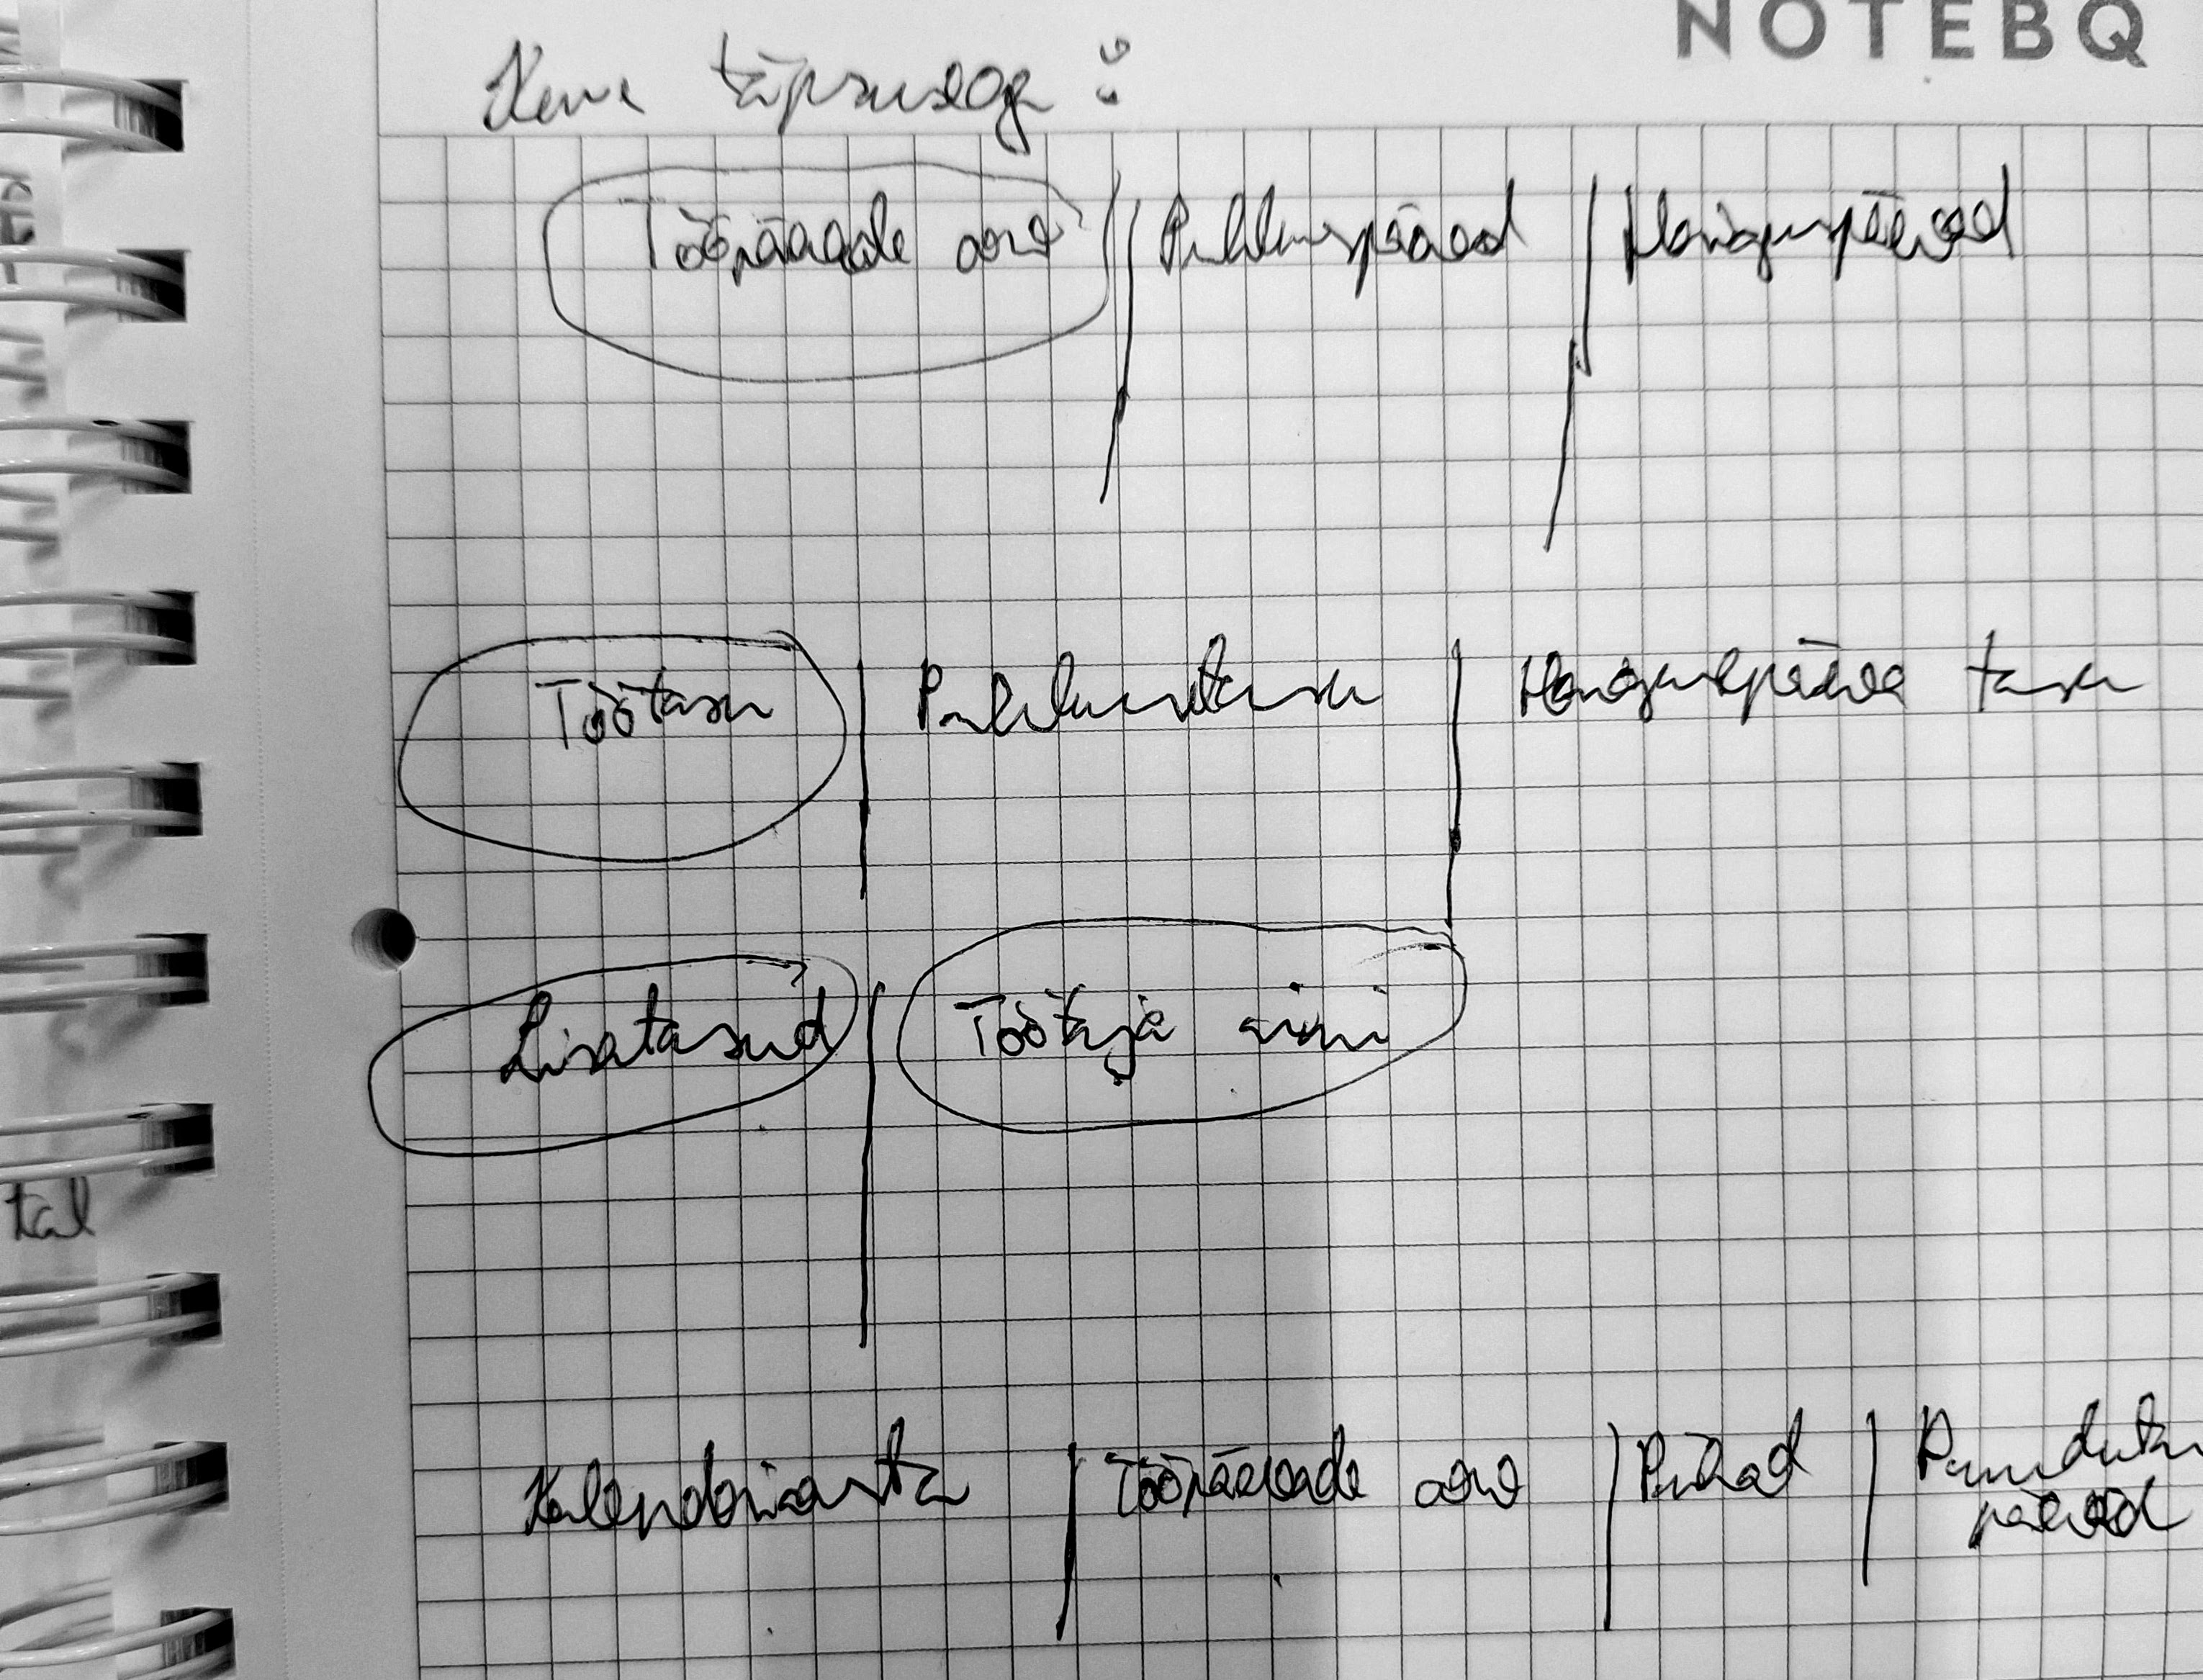 NOTEBQ
täpsusega :
Tööpäevade arv | Puhkuspäevad | Haiguspäevad
Töötasu | Puhkusetasu | Haiguspäeva tasu
Lisatasud | Töötaja nimi
tal
Kalendriaasta | Tööpäevade arv | Pühad | Puudutud
päevad